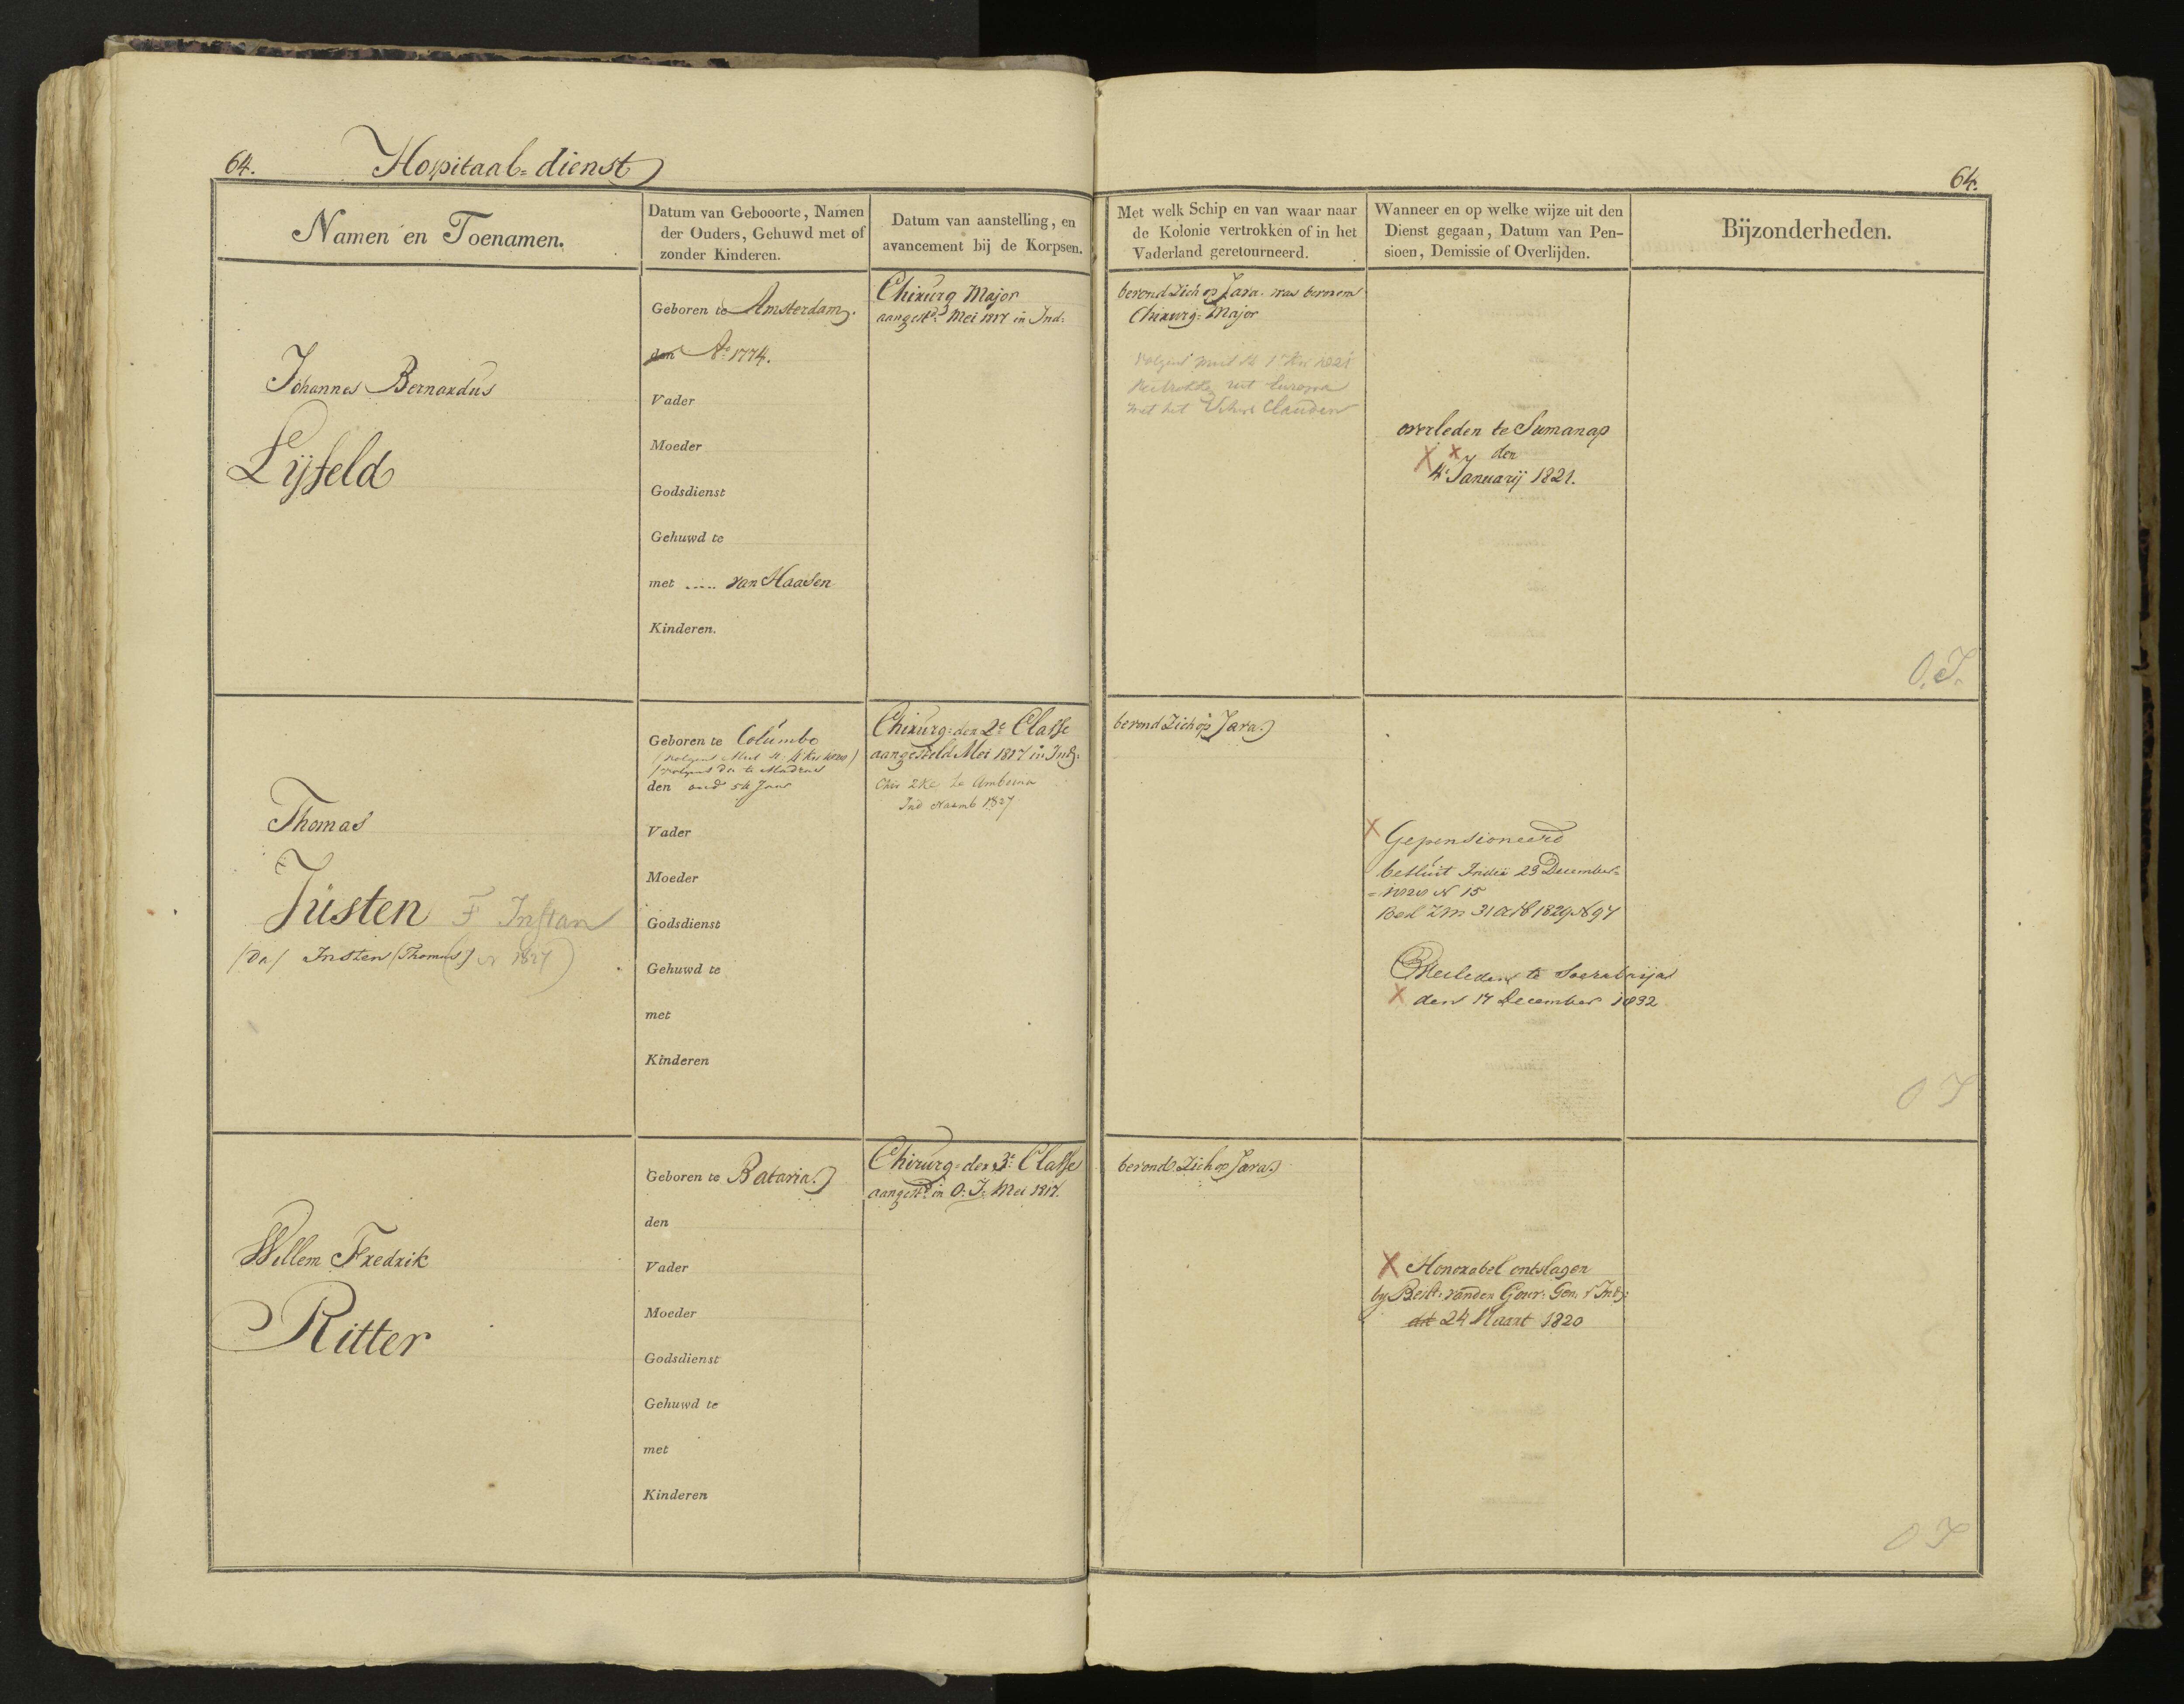 64.
Hospitaal-dienst
64.
Namen en Toenamen.
Datum van Gebooorte, Namen
der Ouders, Gehuwd met of
zonder Kinderen.
Datum van aanstelling, en
avancement bij de Korpsen.
Met welk Schip en van waar naar
de Kolonie vertrokken of in het
Vaderland geretourneerd.
Wanneer en op welke wijze uit den
Dienst gegaan, Datum van Pen-
sioen, Demissie of Overlijden.
Bijzonderheden.
Johannes Bernardus
Lijfeld
Geboren te Amsterdam.
den Ao 1774.
Vader
Moeder
Godsdienst
Gehuwd te
met ..... van Haasen
Kinderen.
Chirurg Major
aangestd: Mei 1817 in Ind:
bevond zich op Java. was bevorens
Chirurg: Major
volgens 1821
uit Europa
met het
overleden te Sumanap
den
4e Januarij 1821.
O.I.
Thomas
Justen F Instan
/Da/ Insten (Thomas) 1827)
Geboren te Columbo
/volgens
/volgens do te Madras
den oud 54 Jaar
Vader
Moeder
Godsdienst
Gehuwd te
met
Kinderen
Chirurg: der 2e Classe
aangesteld Mei 1817 in Ind:
Chir 2 Kl te Amboina
Ind Naamb 1827
bevond zich op Java.
Gepensioneerd
besluit Indie 29 December
N 15
31 1829 N 97
Overleden te Soerabaija
den 17 December 1832
O I
Willem Fredrik
Ritter
Geboren te Batavia.
den
Vader
Moeder
Godsdienst
Gehuwd te
met
Kinderen
Chirurg: der 3e Classe
aangestd: in O: I: Mei 1817.
bevond zich op Java.
Honorabel ontslagen
by Beslt: van den Gour: Gen: v Ind:
dd 24 Maart 1820
O I